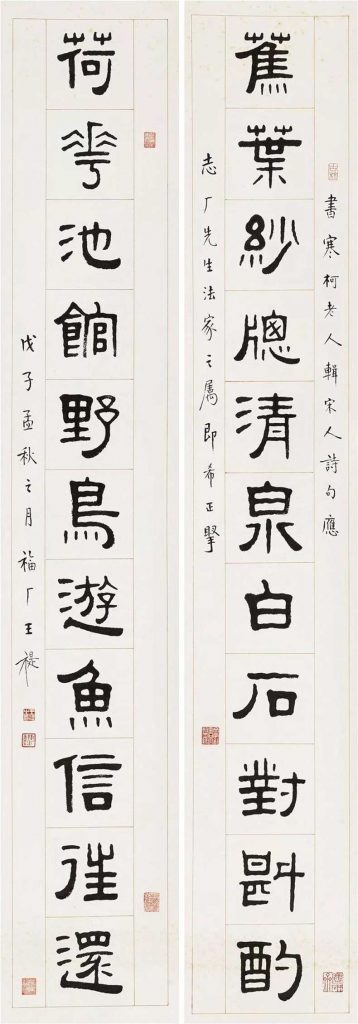 書寒柯老人輯宋人詩句應
蕉葉紗牕清泉白石對斟酌
志厂先生法家之屬即希正擥
荷華池館野鳥遊魚信徃還
戊子孟秋之月福厂王禔